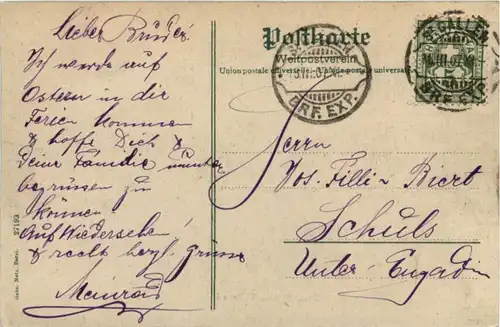 Postkarte
Weltpostverein
Union postale universelle. Unione postale universale
ST. GALLEN
BRF. EXP.
ST. GALLEN
III.07
BRF. EXP.
Lieber Bruder!
Ich werde auf
Ostern in die
Ferien kommen
& hoffe Dich &
Deine Familie munter
begrüssen zu
können
Auf Wiedersehen
& recht herzl. Grüsse
Meinrad
Herrn
Jos. Filli-Biert
Schuls
Unter-Engadin
27193